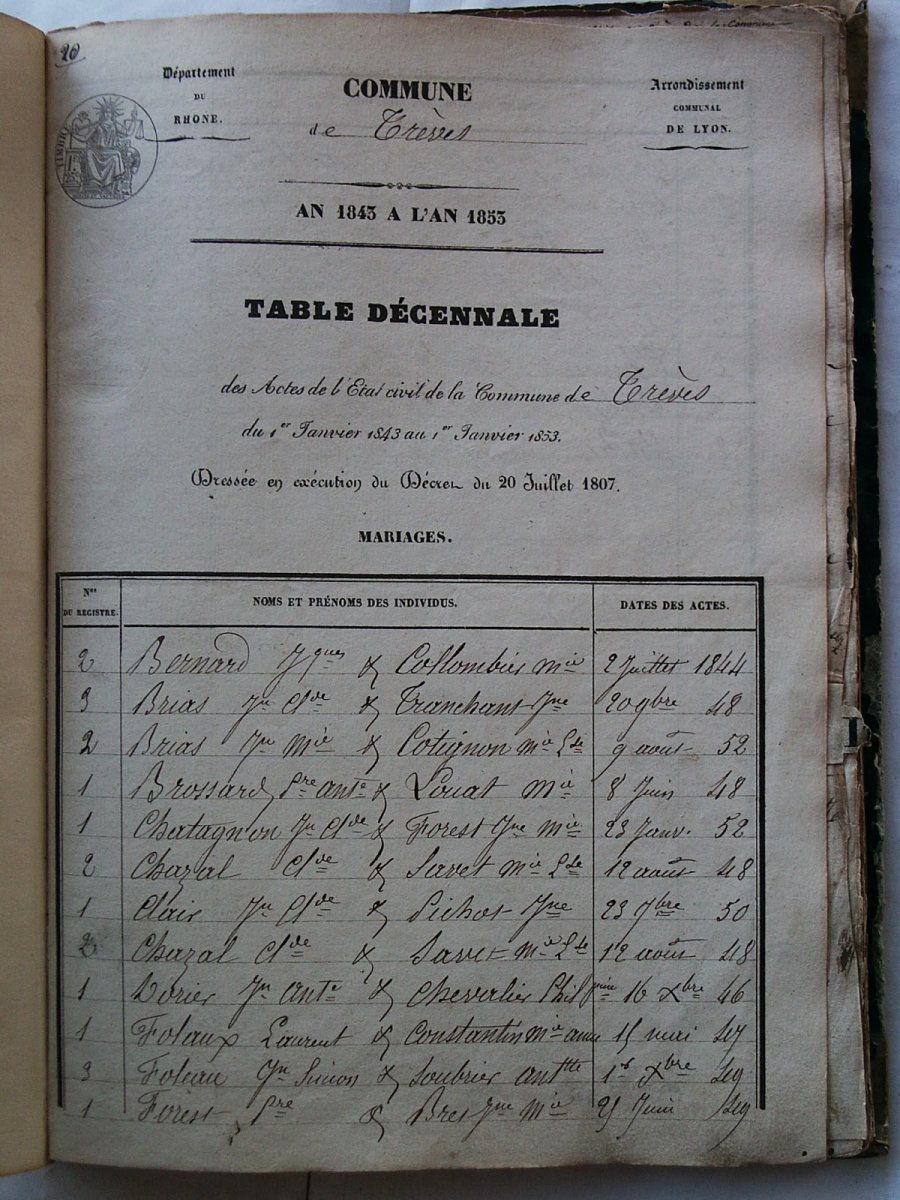 20
Département
DU
RHONE.
COMMUNE
de Trèves
Arrondissement
COMMUNAL
DE LYON.
TIMBRE
AN 1843 A L'AN 1853
TABLE DÉCENNALE
des Actes de l'Etat civil de la Commune de Trèves
du 1er Janvier 1843 au 1er Janvier 1853.
Dressée en exécution du Décret du 20 Juillet 1807.
MARIAGES.
Nos DU REGISTRE. NOMS ET PRÉNOMS DES INDIVIDUS. DATES DES ACTES.
2 Bernard Jques & Collombier Mie 2 Juillet 1844
3 Brias Jn Clde & Tranchant Jne 20 9bre 48
2 Brias Jn Mie & Cotignon Mie Lse 9 août 52
1 Brossard Pre Ante & Louat Mie 8 Juin 48
1 Chatagnon Jn Clde & Forest Jne Mie 23 Janv. 52
2 Chazal Clde & Savet Mie Lse 12 août 48
1 Clair Jn Clde & Pichot Jne 23 7bre 50
2 Chazal Clde & Savet Mie Lse 12 août 48
1 Dorier Jn Ante & Chevalier Philpine 16 Xbre 46
1 Foleaux Laurent & Constantin Mie anne 15 mai 47
3 Foleau Jn Simon & Soubrier Anttte 1er Xbre 49
1 Forest Pre & Bret Jne Mie 25 Juin 49